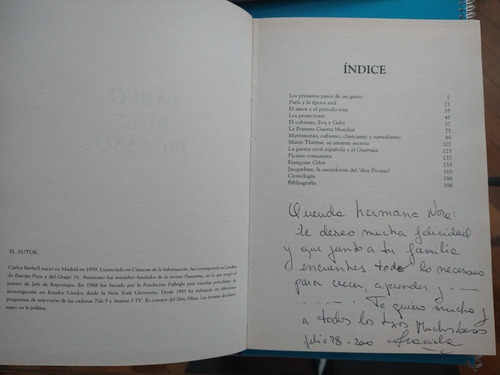 EL AUTOR.
Carlos Berbell nació en Madrid en 1959. Licenciado en Ciencias de la Información, fue corresponsal en Londres
de Europa Press y del Grupo 16. Asimismo fue miembro fundador de la revista Panorama, en la que ocupó el
puesto de Jefe de Reportajes. En 1988 fue becado por la Fundación Fullbright para estudios periodísticos de
investigación en Estados Unidos desde la New York University. Desde 1993 ha trabajado en diferentes
programas de televisión de las cadenas Tele 5 y Antena 3 TV. Es coautor del libro Filesa. Las tramas del dinero
negro en la política.
ÍNDICE
Los primeros pasos de un genio 7
París y la época azul 21
El amor y el período rosa 35
Los protectores 45
El cubismo, Eva y Gaby 57
La Primera Guerra Mundial 75
Matrimonio, cubismo, clasicismo y surrealismo 89
Marie-Thérèse, su amante secreta 107
La guerra civil española y el Guernica 123
Picasso comunista 137
Françoise Gilot 153
Jacqueline, la sacerdotisa del 'dios Picasso' 165
Cronología 188
Bibliografía 196
Querida hermana Nora:
te deseo mucha felicidad
y que junto a tu familia
encuentres todo lo necesario
para crecer, aprender y......
...... Te quiero mucho y
a todos los tuyos Muchos besos
julio 78-2000 Graciela